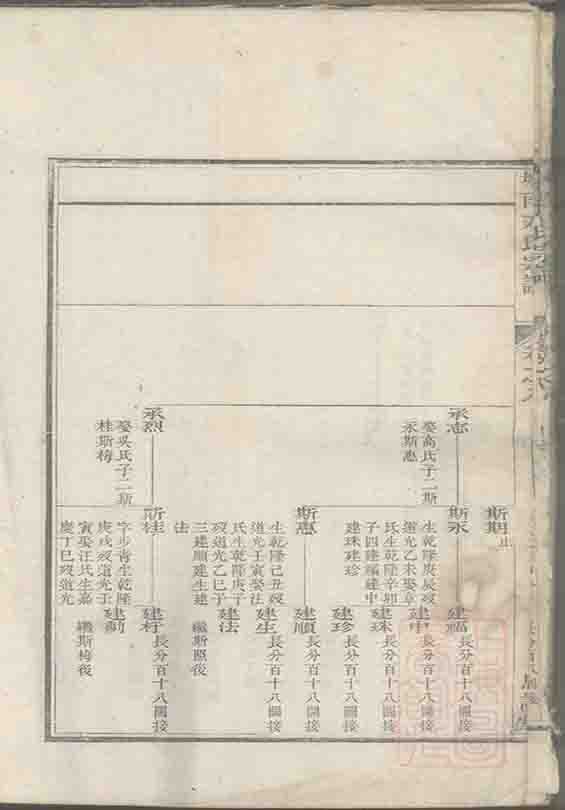 斯期止
承志
娶高氏子二斯
永斯惠
斯永
生乾隆庚辰歿
道光乙未娶章
氏生乾隆辛卯
子四建福建中
建珠建珍
建福
長分百十八圖接
建中
長分百十八圖接
建珠
長分百十八圖接
建珍
長分百十八圖接
斯惠
生乾隆己丑歿
道光壬寅娶法
氏生乾隆庚子
歿道光乙巳子
三建順建生建
法
建順
長分百十八圖接
建生
長分百十八圖接
建法
繼斯照後
承烈
娶吳氏子二斯
桂斯梅
斯桂
字步青生乾隆
庚戌歿道光壬
寅娶汪氏生嘉
慶丁巳歿道光
建行
長分百十八圖接
建勛
繼斯梅後